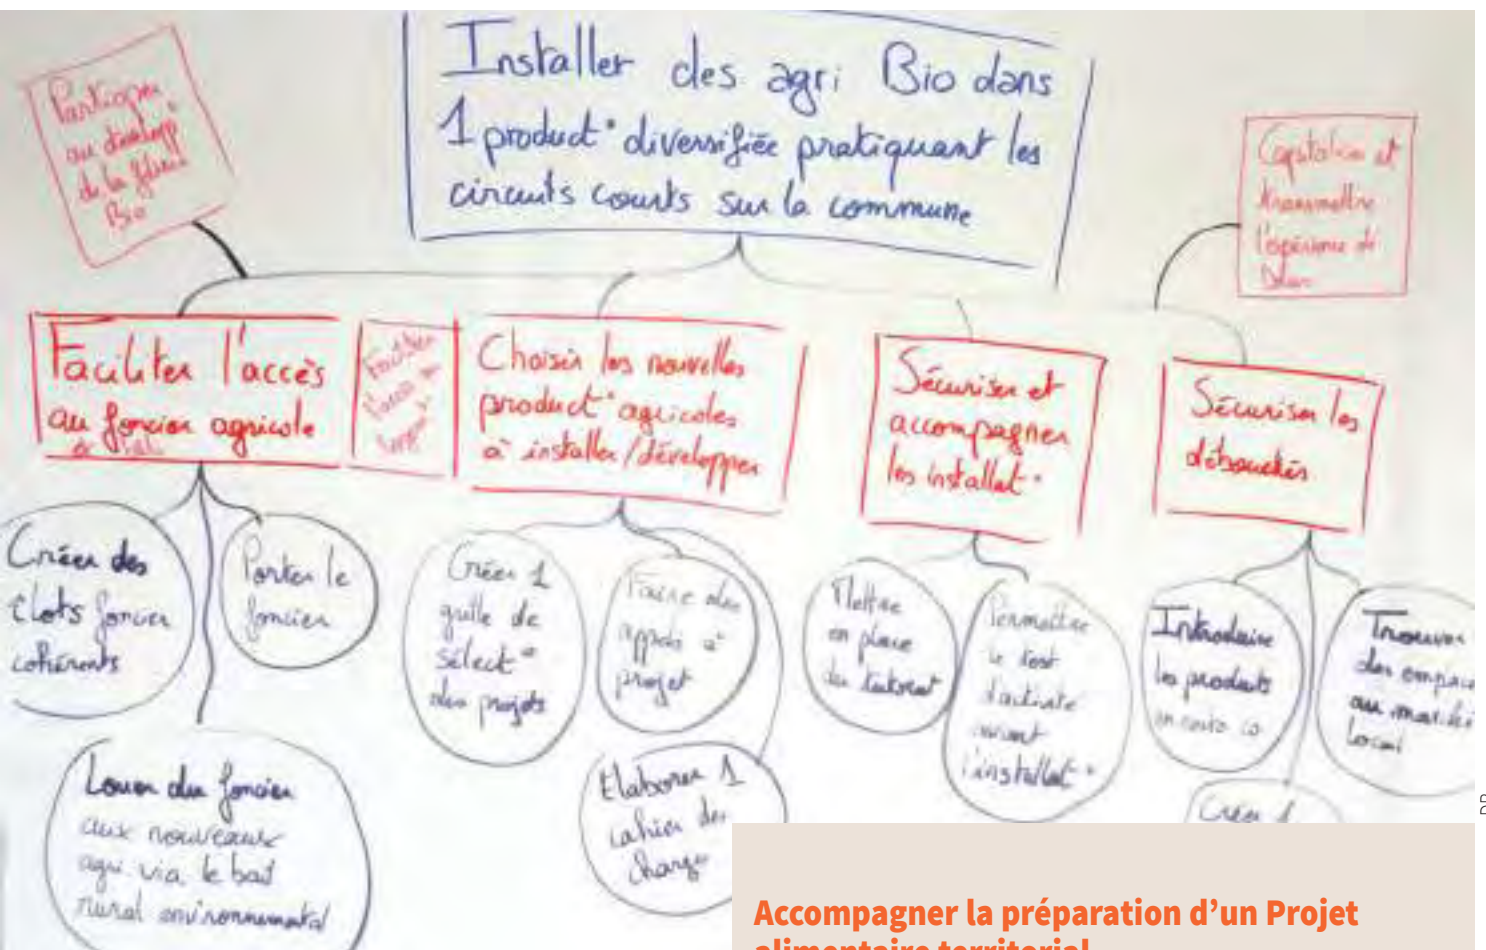 Installer des agri Bio dans
1 product° diversifiée pratiquant les
circuits courts sur la commune
Participer
au développ
de la filière
Bio
Capitaliser et
transmettre
l'expérience de
Faciliter l'accès
au foncier agricole
Faciliter
l'accès au
Choisir les nouvelles
product° agricoles
à installer/développer
Sécuriser et
accompagner
les installat°
Sécuriser les
débouchés
Créer des
îlots foncier
cohérents
Porter le
foncier
Louer du foncier
aux nouveaux
agri via le bail
rural environnemental
Créer 1
grille de
sélect°
des projets
Faire des
appels à
projet
Elaborer 1
cahier des
charge
Mettre
en place
du tutorat
Permettre
le test
d'activité
avant
l'installat°
Introduire
les produits
en resto co
Trouver
des empla
au marché
local
Créer 1
Accompagner la préparation d'un Projet
alimentaire territorial